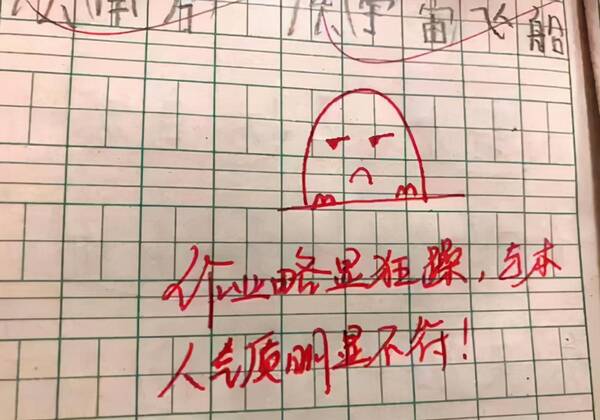 宇宙飞船
作业略显狂躁,与本
人气质明显不符!